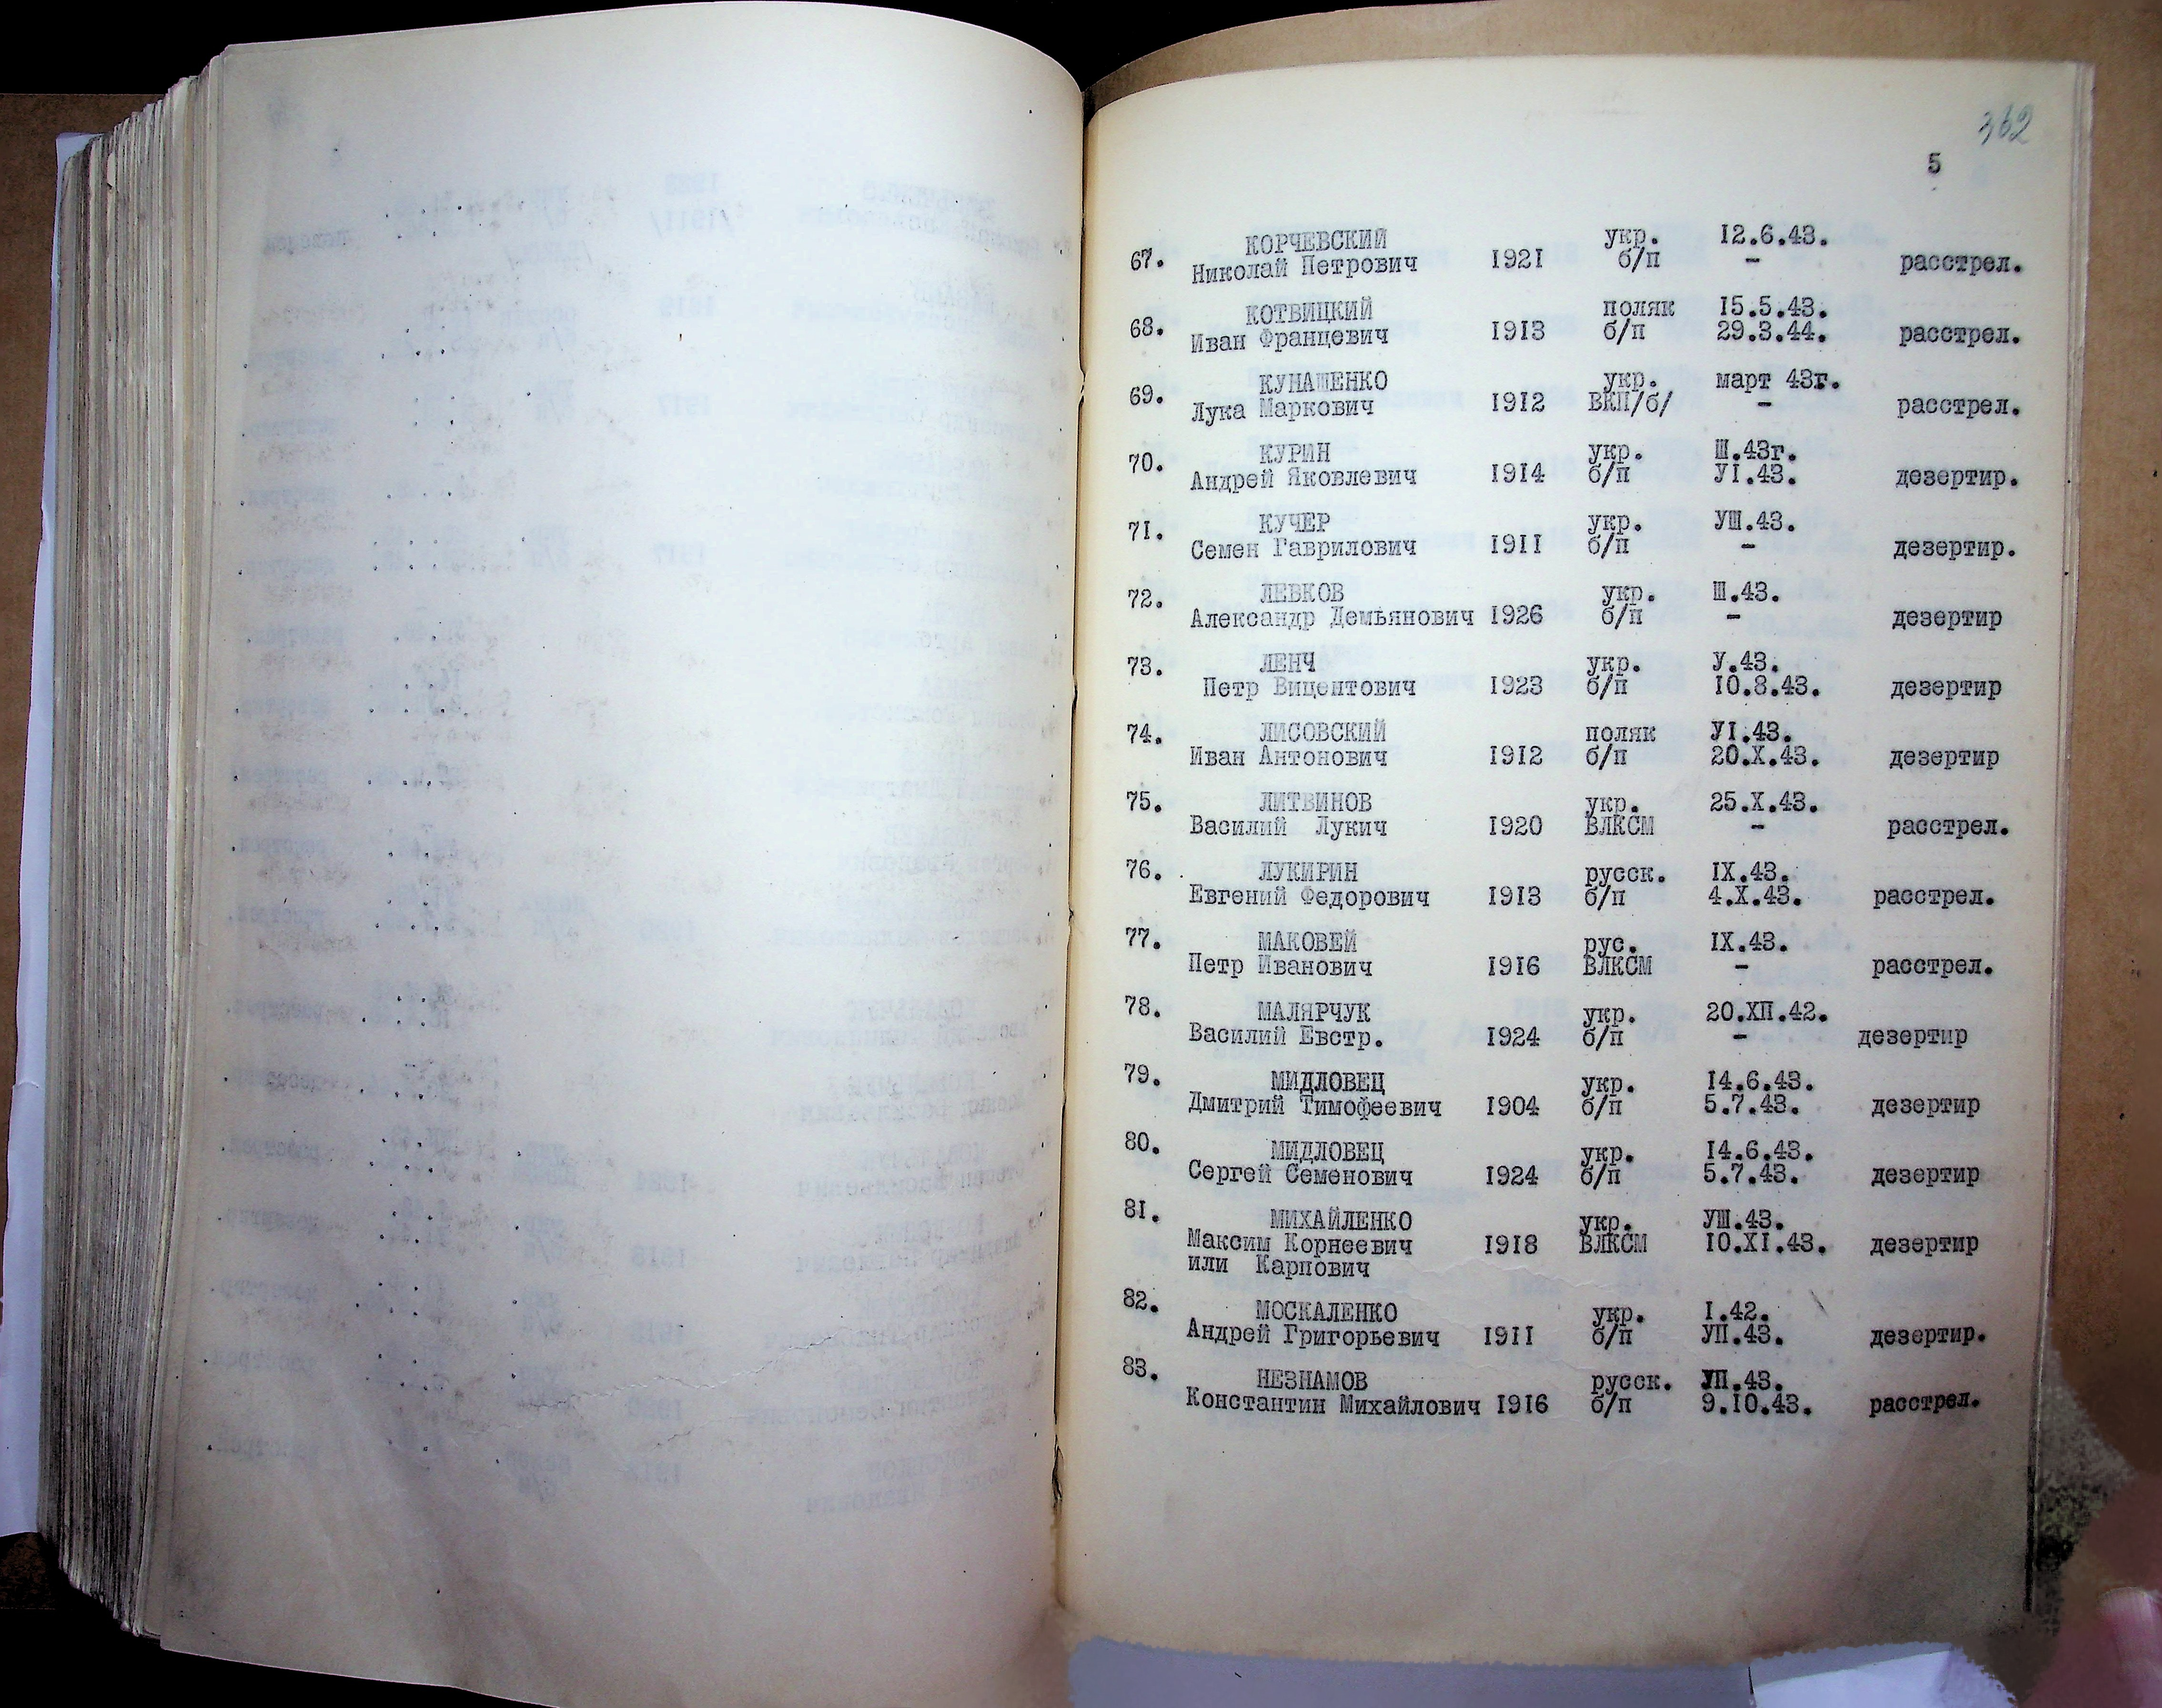 362
5
КОРЧЕВСКИЙ укр. 12.6.43.
67. Николай Петрович 1921 б/п - расстрел.
КОТВИЦКИЙ поляк 15.5.43.
68. Иван Францевич 1913 б/п 29.3.44. расстрел.
КУНАШЕНКО укр. март 43г.
69. Лука Маркович 1912 ВКП/б/ - расстрел.
70. КУРИН укр. Ш.43г.
Андрей Яковлевич 1914 б/п УI.43. дезертир.
71. КУЧЕР укр. УШ.43.
Семен Гаврилович 1911 б/п - дезертир.
72. ЛЕВКОВ укр. Ш.43.
Александр Демьянович 1926 б/п - дезертир
73. ЛЕНЧ укр. У.43.
Петр Вицентович 1923 б/п 10.8.43. дезертир
74. ЛИСОВСКИЙ поляк УI.43.
Иван Антонович 1912 б/п 20.Х.43. дезертир
75. ЛИТВИНОВ укр. 25.Х.43.
Василий Лукич 1920 ВЛКСМ - расстрел.
76. ЛУКИРИН русск. IX.43.
Евгений Федорович 1913 б/п 4.Х.43. расстрел.
77. МАКОВЕЙ рус. IX.43.
Петр Иванович 1916 ВЛКСМ - расстрел.
78. МАЛЯРЧУК укр. 20.ХП.42.
Василий Евстр. 1924 б/п - дезертир
79. МИДЛОВЕЦ укр. 14.6.43.
Дмитрий Тимофеевич 1904 б/п 5.7.43. дезертир
80. МИДЛОВЕЦ укр. 14.6.43.
Сергей Семенович 1924 б/п 5.7.43. дезертир
81. МИХАЙЛЕНКО укр. УШ.43.
Максим Корнеевич 1918 ВЛКСМ 10.XI.43. дезертир
или Карпович
82. МОСКАЛЕНКО укр. I.42.
Андрей Григорьевич 1911 б/п УП.43. дезертир.
83. НЕЗНАМОВ русск. УП.43.
Константин Михайлович 1916 б/п 9.10.43. расстрел.